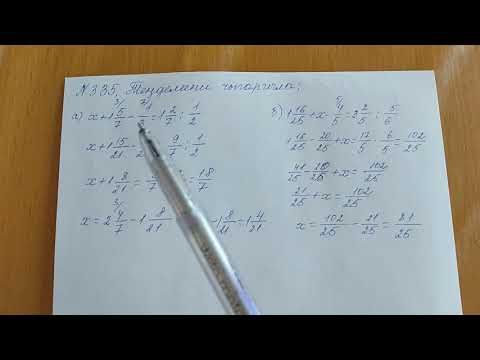 №335. Теңдемени чыгаргыла:
а) x + 1 5/7 - 1/3 = 1 2/7 : 1/2
x + 1 15/21 - 9/7 : 1/2
x + 1 8/21 = 18/7
x = 2 4/7 - 1 8/21 1 4/21
б) 1 16/25 + x - 4/5 = 2 2/5 : 5/6
16/25 - 20/25 + x = 17/5 · 6/5 = 102/25
41/25 - 20/25 + x = 102/25
21/25 + x = 102/25
x = 102/25 - 21/25 = 81/25